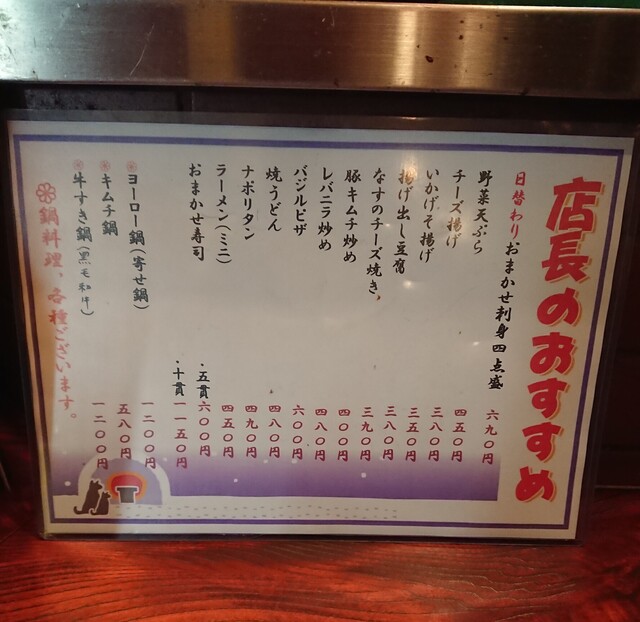 店長のおすすめ
日替わりおまかせ刺身四点盛 六九〇円
野菜天ぷら 四五〇円
チーズ揚げ 三八〇円
いかげそ揚げ 三五〇円
揚げ出し豆腐 三八〇円
なすのチーズ焼き 三九〇円
豚キムチ炒め 四〇〇円
レバニラ炒め 四八〇円
バジルピザ 六〇〇円
焼うどん 四八〇円
ナポリタン 四九〇円
ラーメン(ミニ) 四五〇円
おまかせ寿司 ・五貫 六〇〇円
・十貫 一一五〇円
ヨーロー鍋(寄せ鍋) 一二〇〇円
キムチ鍋 五八〇円
牛すき鍋(黒毛和牛) 一二〇〇円
鍋料理、各種ございます。